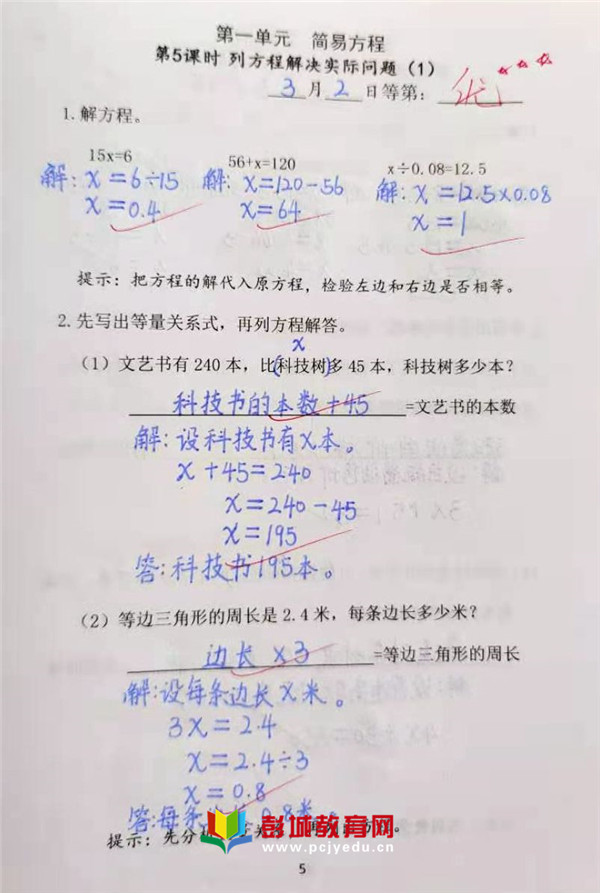 第一单元 简易方程
第5课时 列方程解决实际问题（1）
3月2日等第：优
1.解方程。
15x=6 56+x=120 x÷0.08=12.5
解：x=6÷15 解：x=120-56 解：x=12.5×0.08
x=0.4 x=64 x=1
提示：把方程的解代入原方程，检验左边和右边是否相等。
2.先写出等量关系式，再列方程解答。
x
（1）文艺书有240本，比(科技树)多45本，科技树多少本？
科技书的本数+45=文艺书的本数
解：设科技书有x本。
x+45=240
x=240-45
x=195
答：科技书195本。
（2）等边三角形的周长是2.4米，每条边长多少米？
边长×3=等边三角形的周长
解：设每条边长x米。
3x=2.4
x=2.4÷3
x=0.8
答：每条 0.8米。
提示：先分
彭城教育网
www.pcjyedu.cn
5